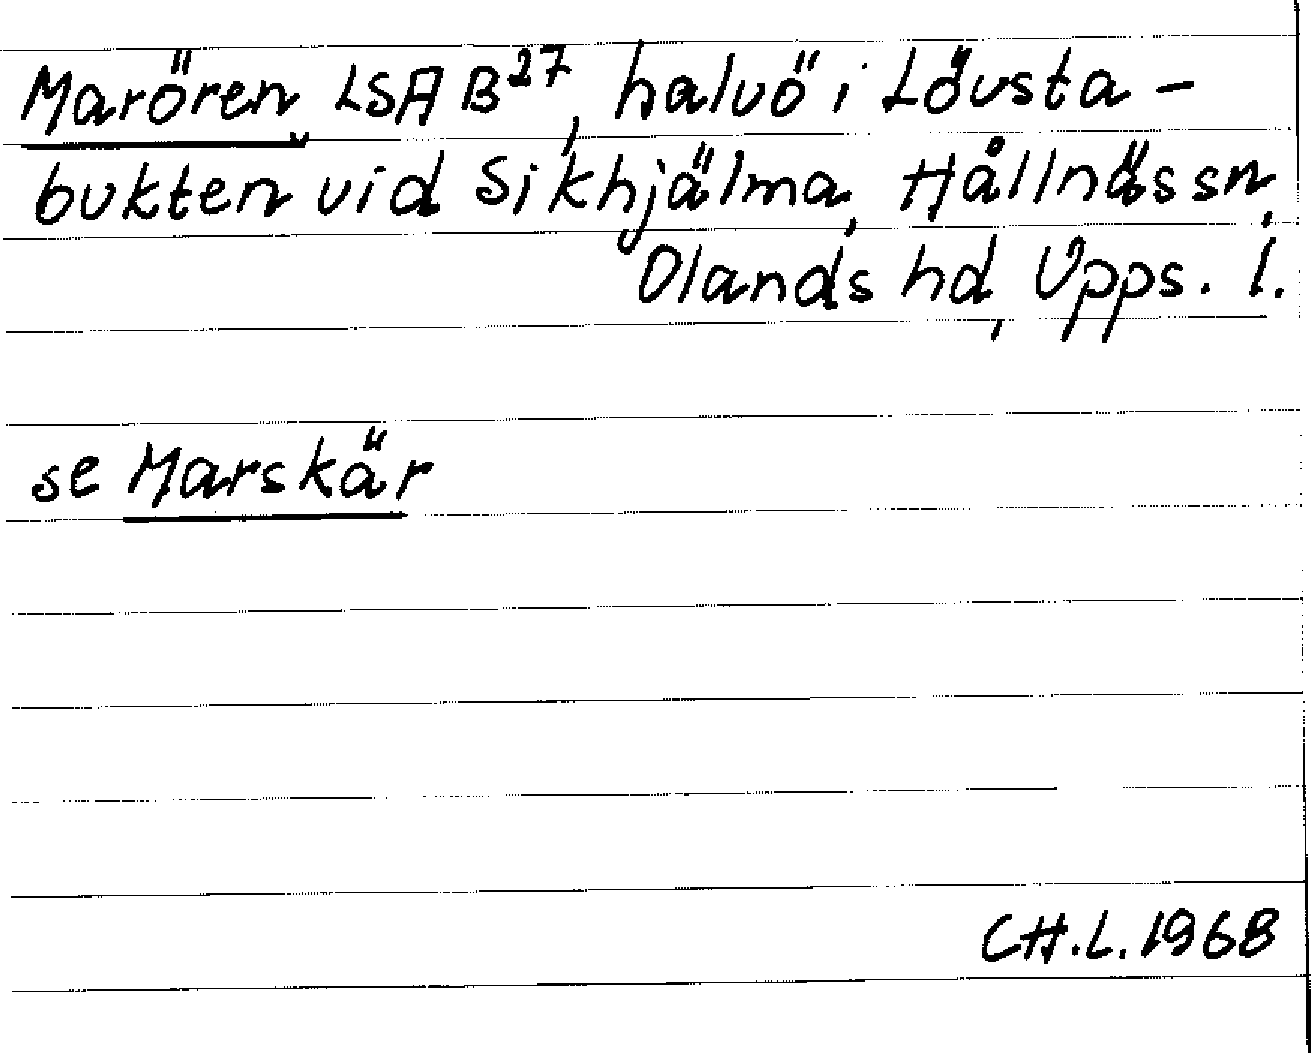 Marören LSA B27, halvö i Lövsta-
bukten vid Sikhjälma, Hållnäs sn,
Olands hd, Upps. l.
se Marskär
CH.L. 1968